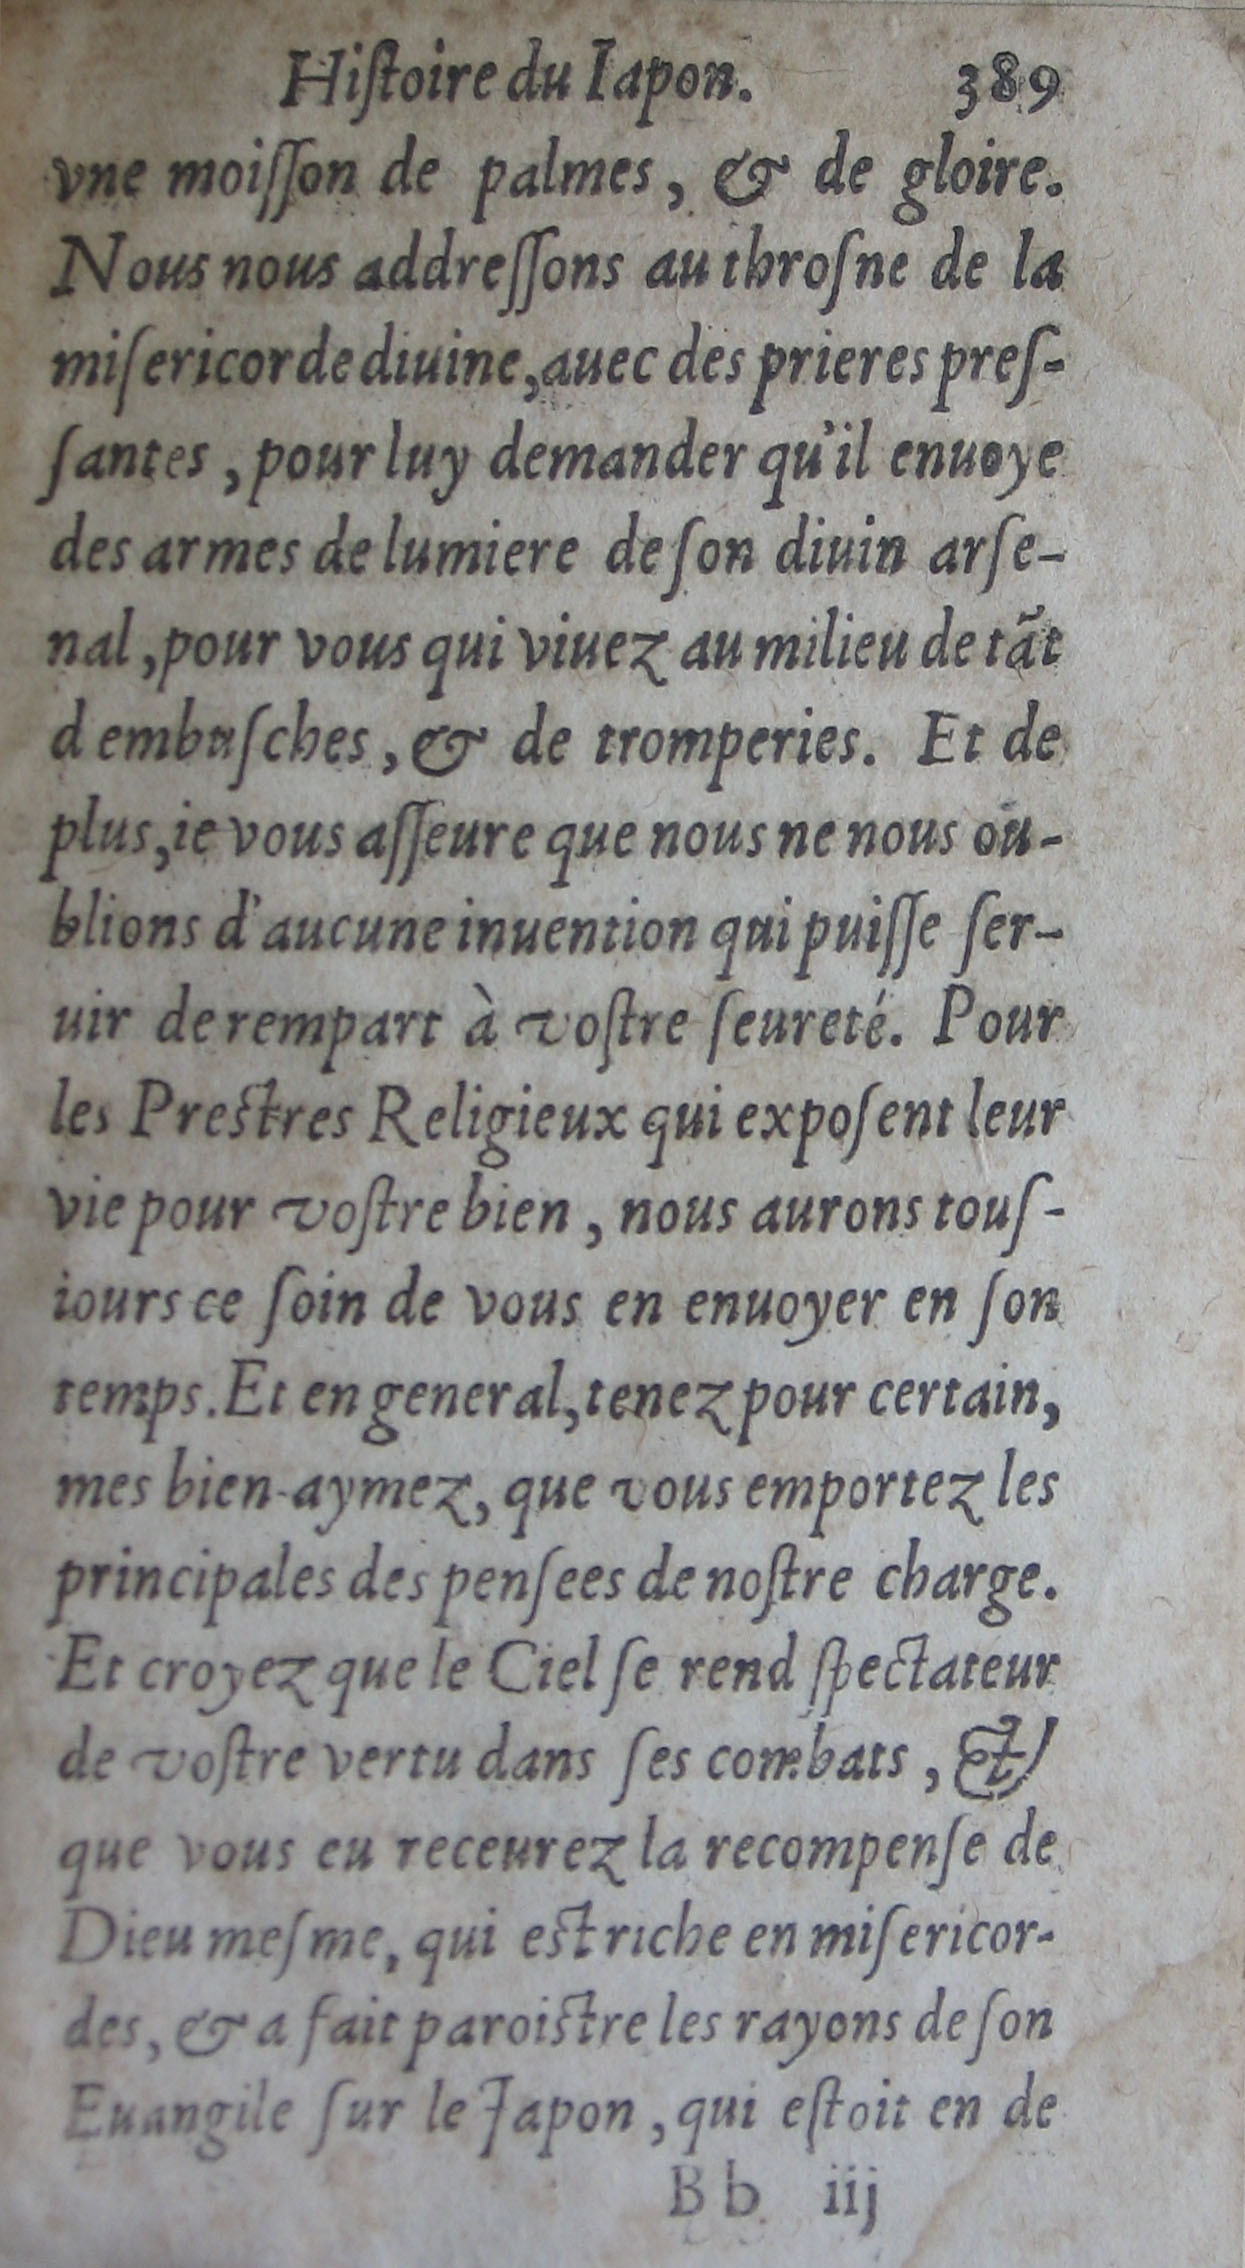 Hiſtoire du Iapon. 389
vne moiſſon de palmes, & de gloire.
Nous nous addreſſons au throſne de la
miſericorde diuine, auec des prieres preſ-
ſantes, pour luy demander qu'il enuoye
des armes de lumiere de ſon diuin arſe-
nal, pour vous qui viuez au milieu de tãt
d embuſches, & de tromperies. Et de
plus, ie vous aſſeure que nous ne nous ou-
blions d'aucune inuention qui puiſſe ſer-
uir de rempart à voſtre ſeureté. Pour
les Preſtres Religieux qui expoſent leur
vie pour voſtre bien, nous aurons touſ-
iours ce ſoin de vous en enuoyer en ſon
temps. Et en general, tenez pour certain,
mes bien-aymez, que vous emportez les
principales des penſees de noſtre charge.
Et croyez que le Ciel ſe rend ſpectateur
de voſtre vertu dans ſes combats, &
que vous eu receurez la recompenſe de
Dieu meſme, qui eſt riche en miſericor-
des, & a fait paroiſtre les rayons de ſon
Euangile ſur le Japon, qui eſtoit en de
Bb iij